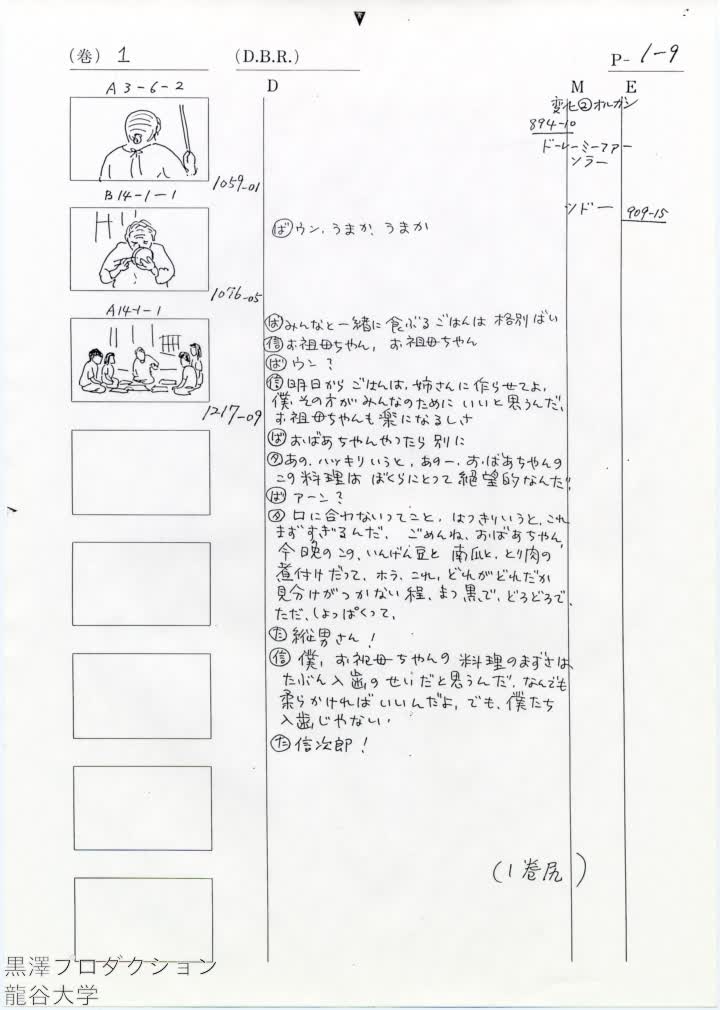 （巻） 1
（D.B.R.）
P- 1-9
D
M
E
A3-6-2
変化②オルガン
894-10
ドーレーミーファー
ソラー
1059-01
B14-1-1
シドー
909-15
ば ウン、うまか、うまか
1076-05
A14-1-1
ば みんなと一緒に食ぶるごはんは 格別ばい
信 お祖母ちゃん、お祖母ちゃん
ば ウン？
信 明日からごはんは、姉さんに作らせてよ、
僕、その方がみんなのために いいと思うんだ、
お祖母ちゃんも楽になるしさ
1217-09
ば おばあちゃんやったら 別に
タ あの、ハッキリいうと、あのー、おばあちゃんの
この料理は ぼくらにとって 絶望的なんだ！
ば アーン？
タ 口に合わないってこと、はっきりいうと、これ
まずすぎるんだ、ごめんね、おばあちゃん、
今晩のこの、いんげん豆と 南瓜と、とり肉の
煮付けだって、ホラ、これ、どれがどれだか
見分けがつかない程、まっ黒で、どろどろで、
ただ、しょっぱくって、
た 縦男さん！
信 僕、お祖母ちゃんの 料理のまずさは、
たぶん入歯のせいだと思うんだ、なんでも
柔らかければいいんだよ、でも、僕たち
入歯じゃない、
た 信次郎！
（1巻尻）
黒澤プロダクション
龍谷大学